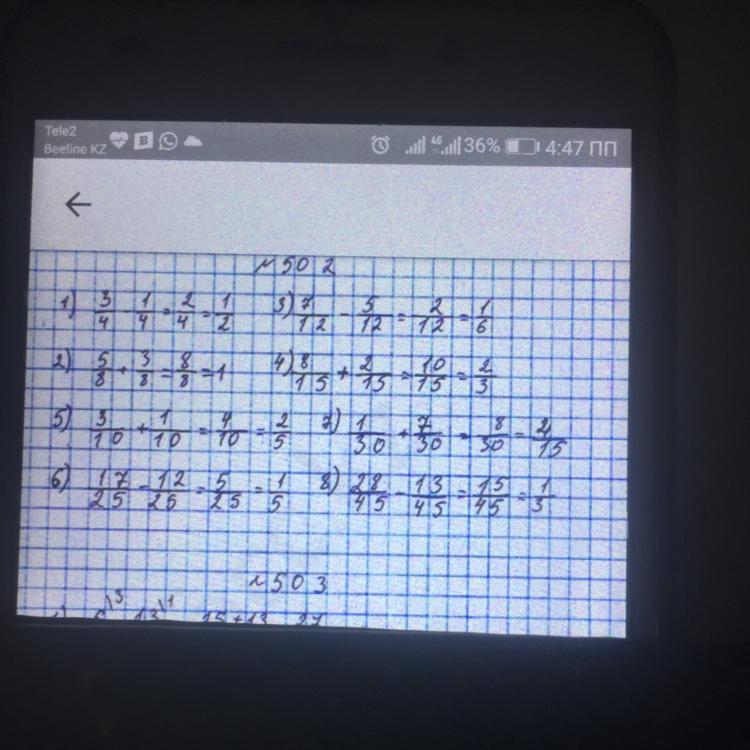 Tele2
Beeline KZ
B
4G 36% 4:47 ПП
№502
1) 3/4 - 1/4 = 2/4 = 1/2 3) 7/12 - 5/12 = 2/12 = 1/6
2) 5/8 + 3/8 = 8/8 = 1 4) 8/15 + 2/15 = 10/15 = 2/3
5) 3/10 + 1/10 = 4/10 = 2/5 7) 1/30 + 7/30 - 8/30 = 4/15
6) 17/25 - 12/25 = 5/25 = 1/5 8) 28/45 - 13/45 = 15/45 = 1/3
№503